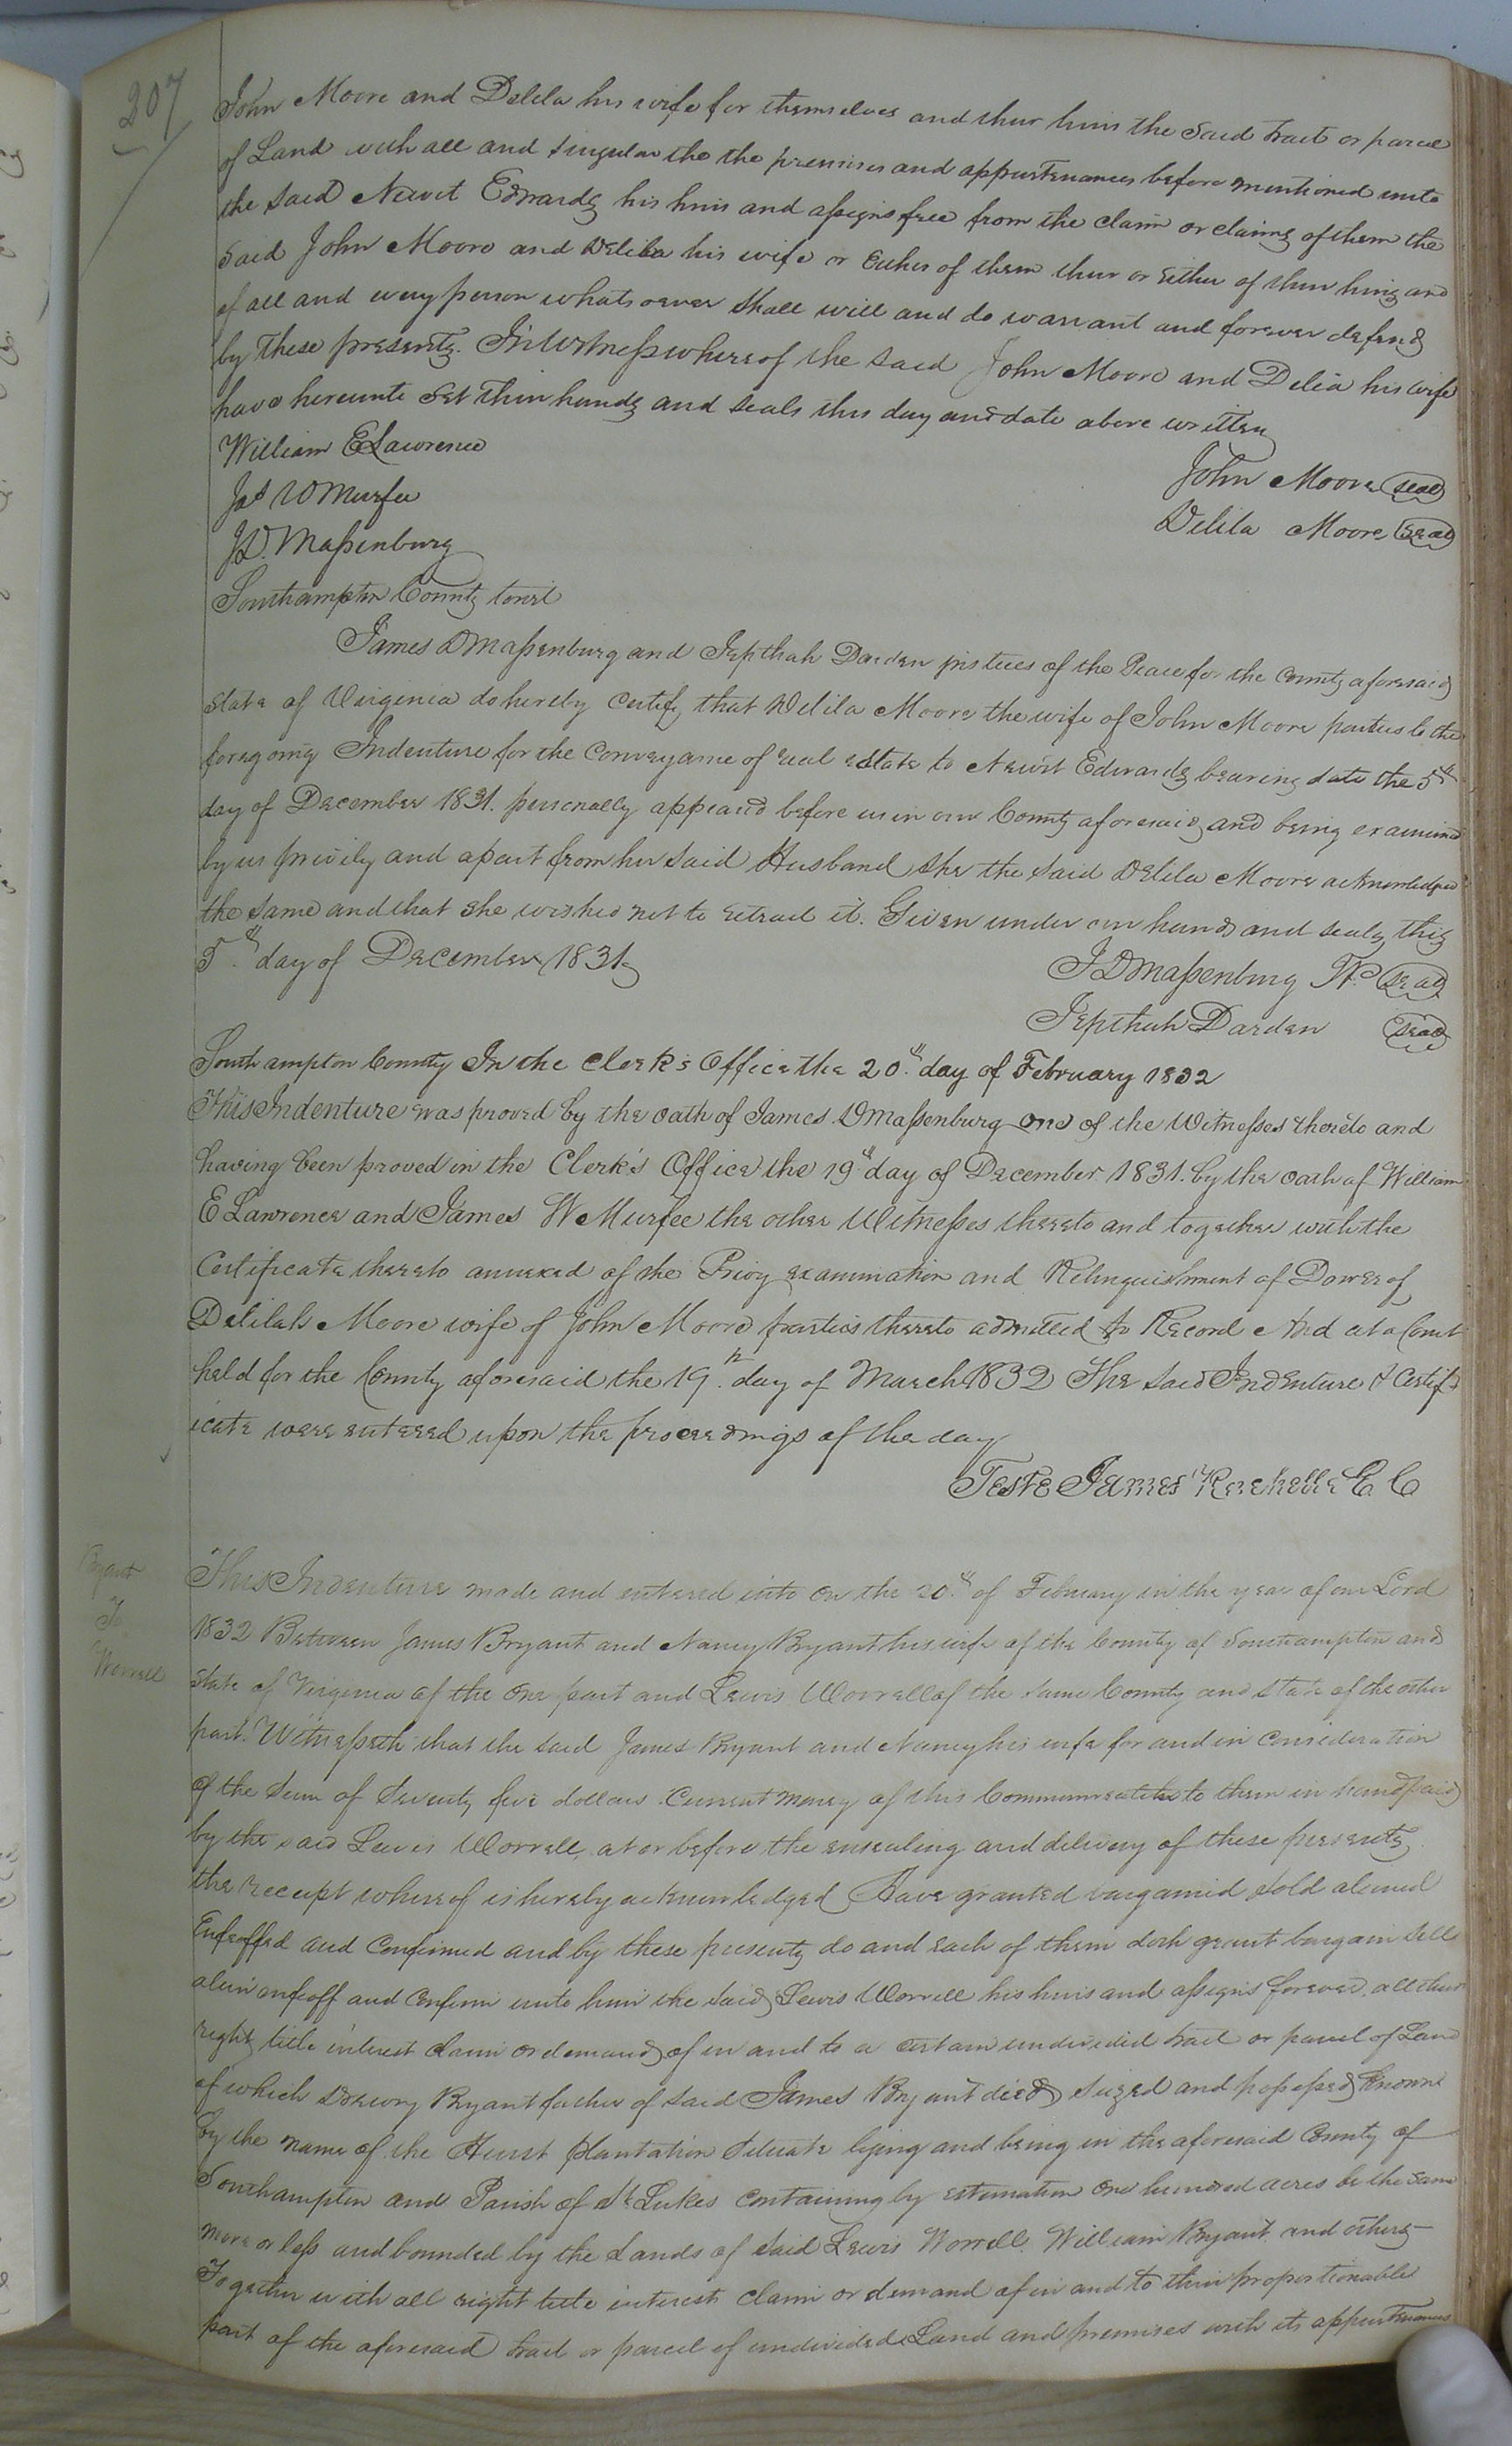 207
John Moore and Delila his wife for themselves and their heirs the said tract or parcel
of Land with all and singular the the premises and appurtenances before mentioned unto
the said Newit Edwards his heirs and assigns free from the claim or claims of them the
said John Moore and Delila his wife or Either of them their or either of their heirs and
of all and every person whatsoever shall will and do warrant and forever defend
by these presents. In Witness whereof the said John Moore and Delia his wife
have hereunto set their hands and seals this day and date above written
William E Lawrence
John Moore seal
Jas W Murfee
Delila Moore seal
J.D. Massenburg
Southampton County towit
James D Massenburg and Jepthah Darden justices of the Peace for the County aforesaid
State of Virginia do hereby Certify that Delila Moore the wife of John Moore parties to the
foregoing Indenture for the Conveyance of real estate to Newit Edwards bearing date the 5th
day of December 1831. personally appeared before us in our County aforesaid, and being examined
by us privily and apart from her said Husband she the said Delila Moore acknowledged
the same and that she wished not to retract it. Given under our hands and seals this
5th day of December 1831
J D Massenburg JP seal
Jepthah Darden seal
Southampton County In the Clerk's Office the 20th day of February 1832
This Indenture was proved by the oath of James D Massenburg one of the Witnesses thereto and
having been proved in the Clerk's Office the 19th day of December 1831. by the oath of William
E Lawrence and James W Murfee the other Witnesses thereto and together with the
Certificate thereto annexed of the Privy examination and Relinquishment of Dower of
Delilah Moore wife of John Moore parties thereto admitted to Record And at a Court
held for the County aforesaid the 19th day of March 1832 The said Indenture & Certif-
icate were entered upon the proceedings of the day
Teste James Rochelle C C
Bryant
To
Worrell
This Indenture made and entered into on the 20th of February in the year of our Lord
1832 Between James Bryant and Nancy Bryant his wife of the County of Southampton and
State of Virginia of the one part and Lewis Worrell of the same County and State of the other
part. Witnesseth that the said James Bryant and Nancy his wife for and in Consideration
of the Sum of Seventy five dollars Current money of this Commonwealth to them in hand paid
by the said Lewis Worrell at or before the ensealing and delivery of these presents
the receipt whereof is hereby acknowledged Have granted bargained sold aliened
Enfeoffed and Confirmed and by these presents do and each of them doth grant bargain sell
alien enfeoff and Confirm unto him the said Lewis Worrell his heirs and assigns forever, all their
right title interest claim or demand of in and to a certain undivided tract or parcel of Land
of which Drewry Bryant father of said James Bryant died seized and possessed Known
by the name of the Hurst plantation Situate lying and being in the aforesaid County of
Southampton and Parish of St Lukes Containing by estimation one hundred acres be the same
more or less and bounded by the Lands of said Lewis Worrell. William Bryant and others
Together with all right title interest claim or demand of in and to their proportionable
part of the aforesaid tract or parcel of undivided Land and premises with its appurtenances